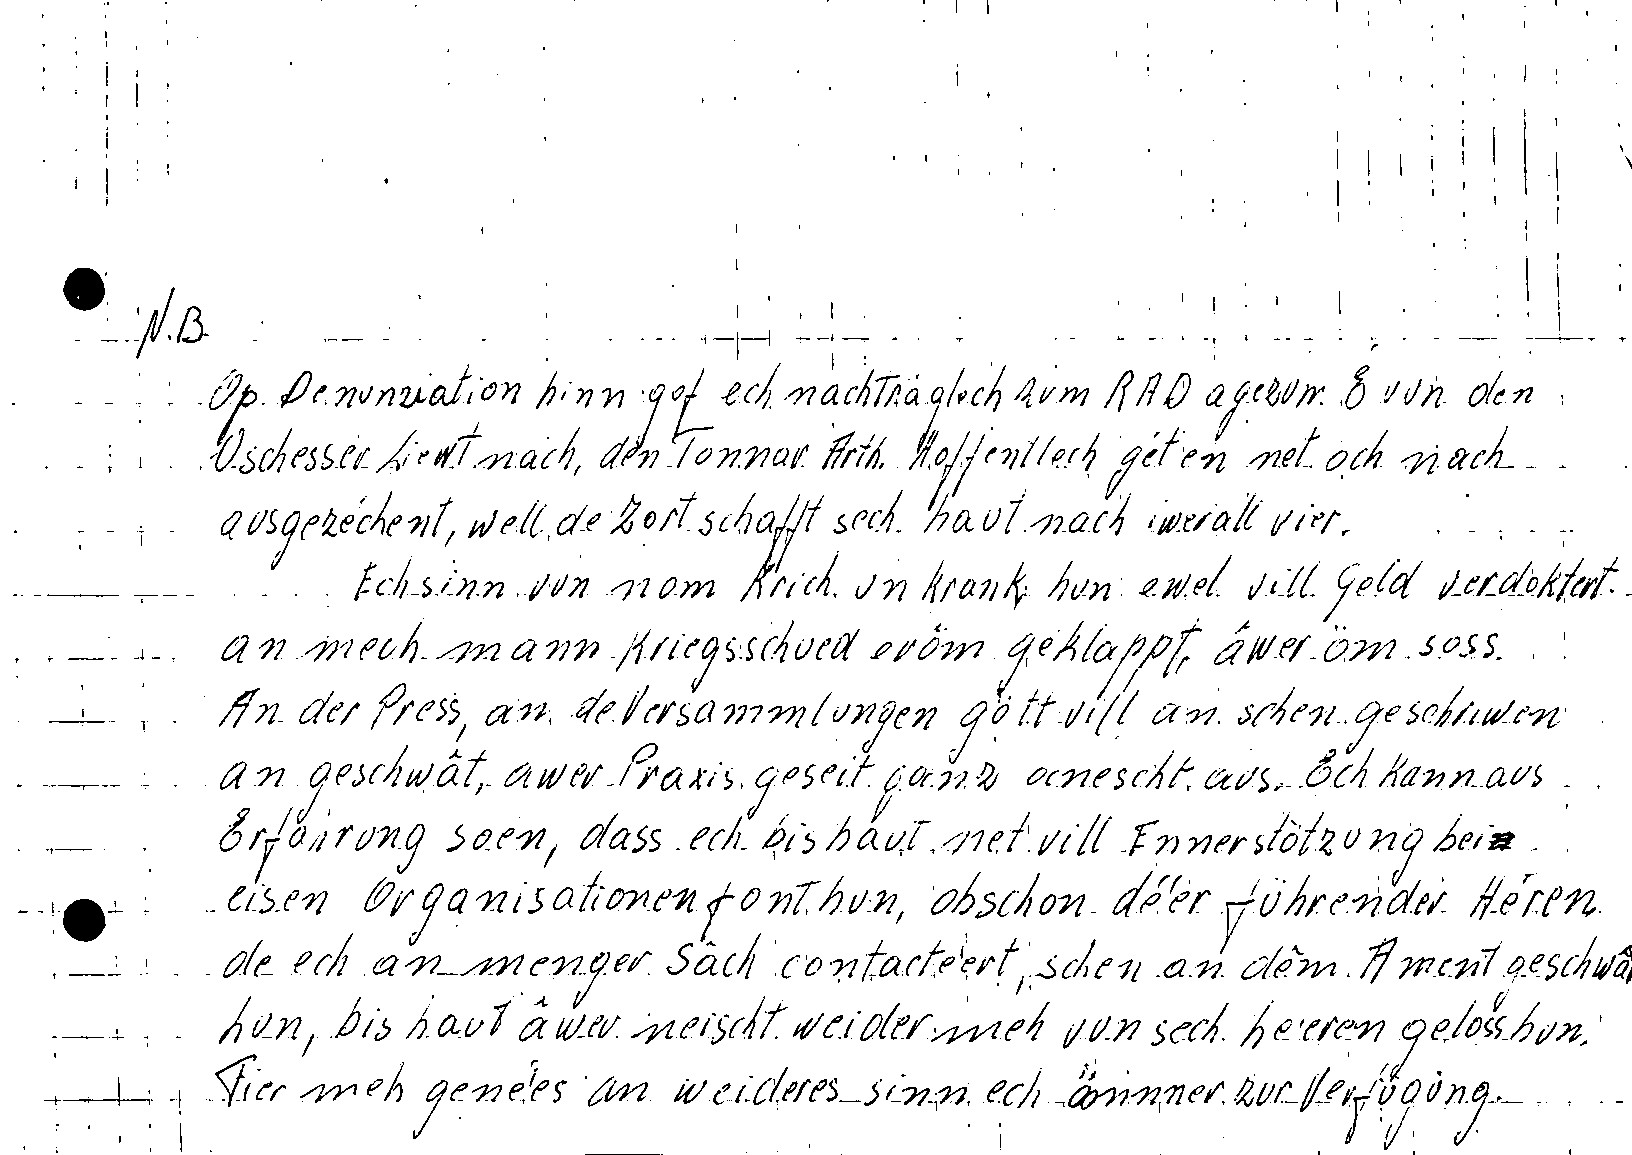 N.B.
Op Denunziation hinn gof ech nachträglech zum RAD agezun. E vun den
Uschesser liewt nach, den Tonnar Arth. Hoffentlech gét en net och nach
ausgezéchent, well de Zort schafft sech haut nach iwerall vier.
Ech sinn vun nom Krich un krank, hun ewel vill Geld verdoktert.
an mech mann Kriegsschued eröm geklappt, âwer öm soss.
An der Press, an de Versammlungen gött vill an schen geschriwen
an geschwât, awer Praxis geseit ganz anescht aus. Ech kann aus
Erfahrung soen, dass ech bis haut net vill Ennerstötzung bei
eisen Organisationen font hun, obschon déèr führender Héren
de ech an menger Sâch contactéert, schen an dêm Ament geschwât
hun, bis haut âwer neischt weider meh vun sech heieren geloss hun.
Fier meh genées an weideres sinn ech ömmer zur Verfügung.